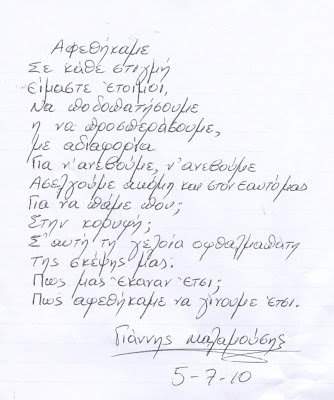 Αφεθήκαμε
Σε κάθε στιγμή
Είμαστε έτοιμοι,
Να ποδοπατήσουμε
ή να προσπεράσουμε,
με αδιαφορία
Για ν' ανεβούμε, ν' ανεβούμε
Ασελγούμε ακόμη και στον εαυτό μας
Για να πάμε που;
Στην κορυφή;
Σ' αυτή τη γελοία οφθαλμαπάτη
της σκέψης μας.
Πως μας έκαναν έτσι;
Πως αφεθήκαμε να γίνουμε έτσι.
Γιάννης Μαλαμούσης
5-7-10